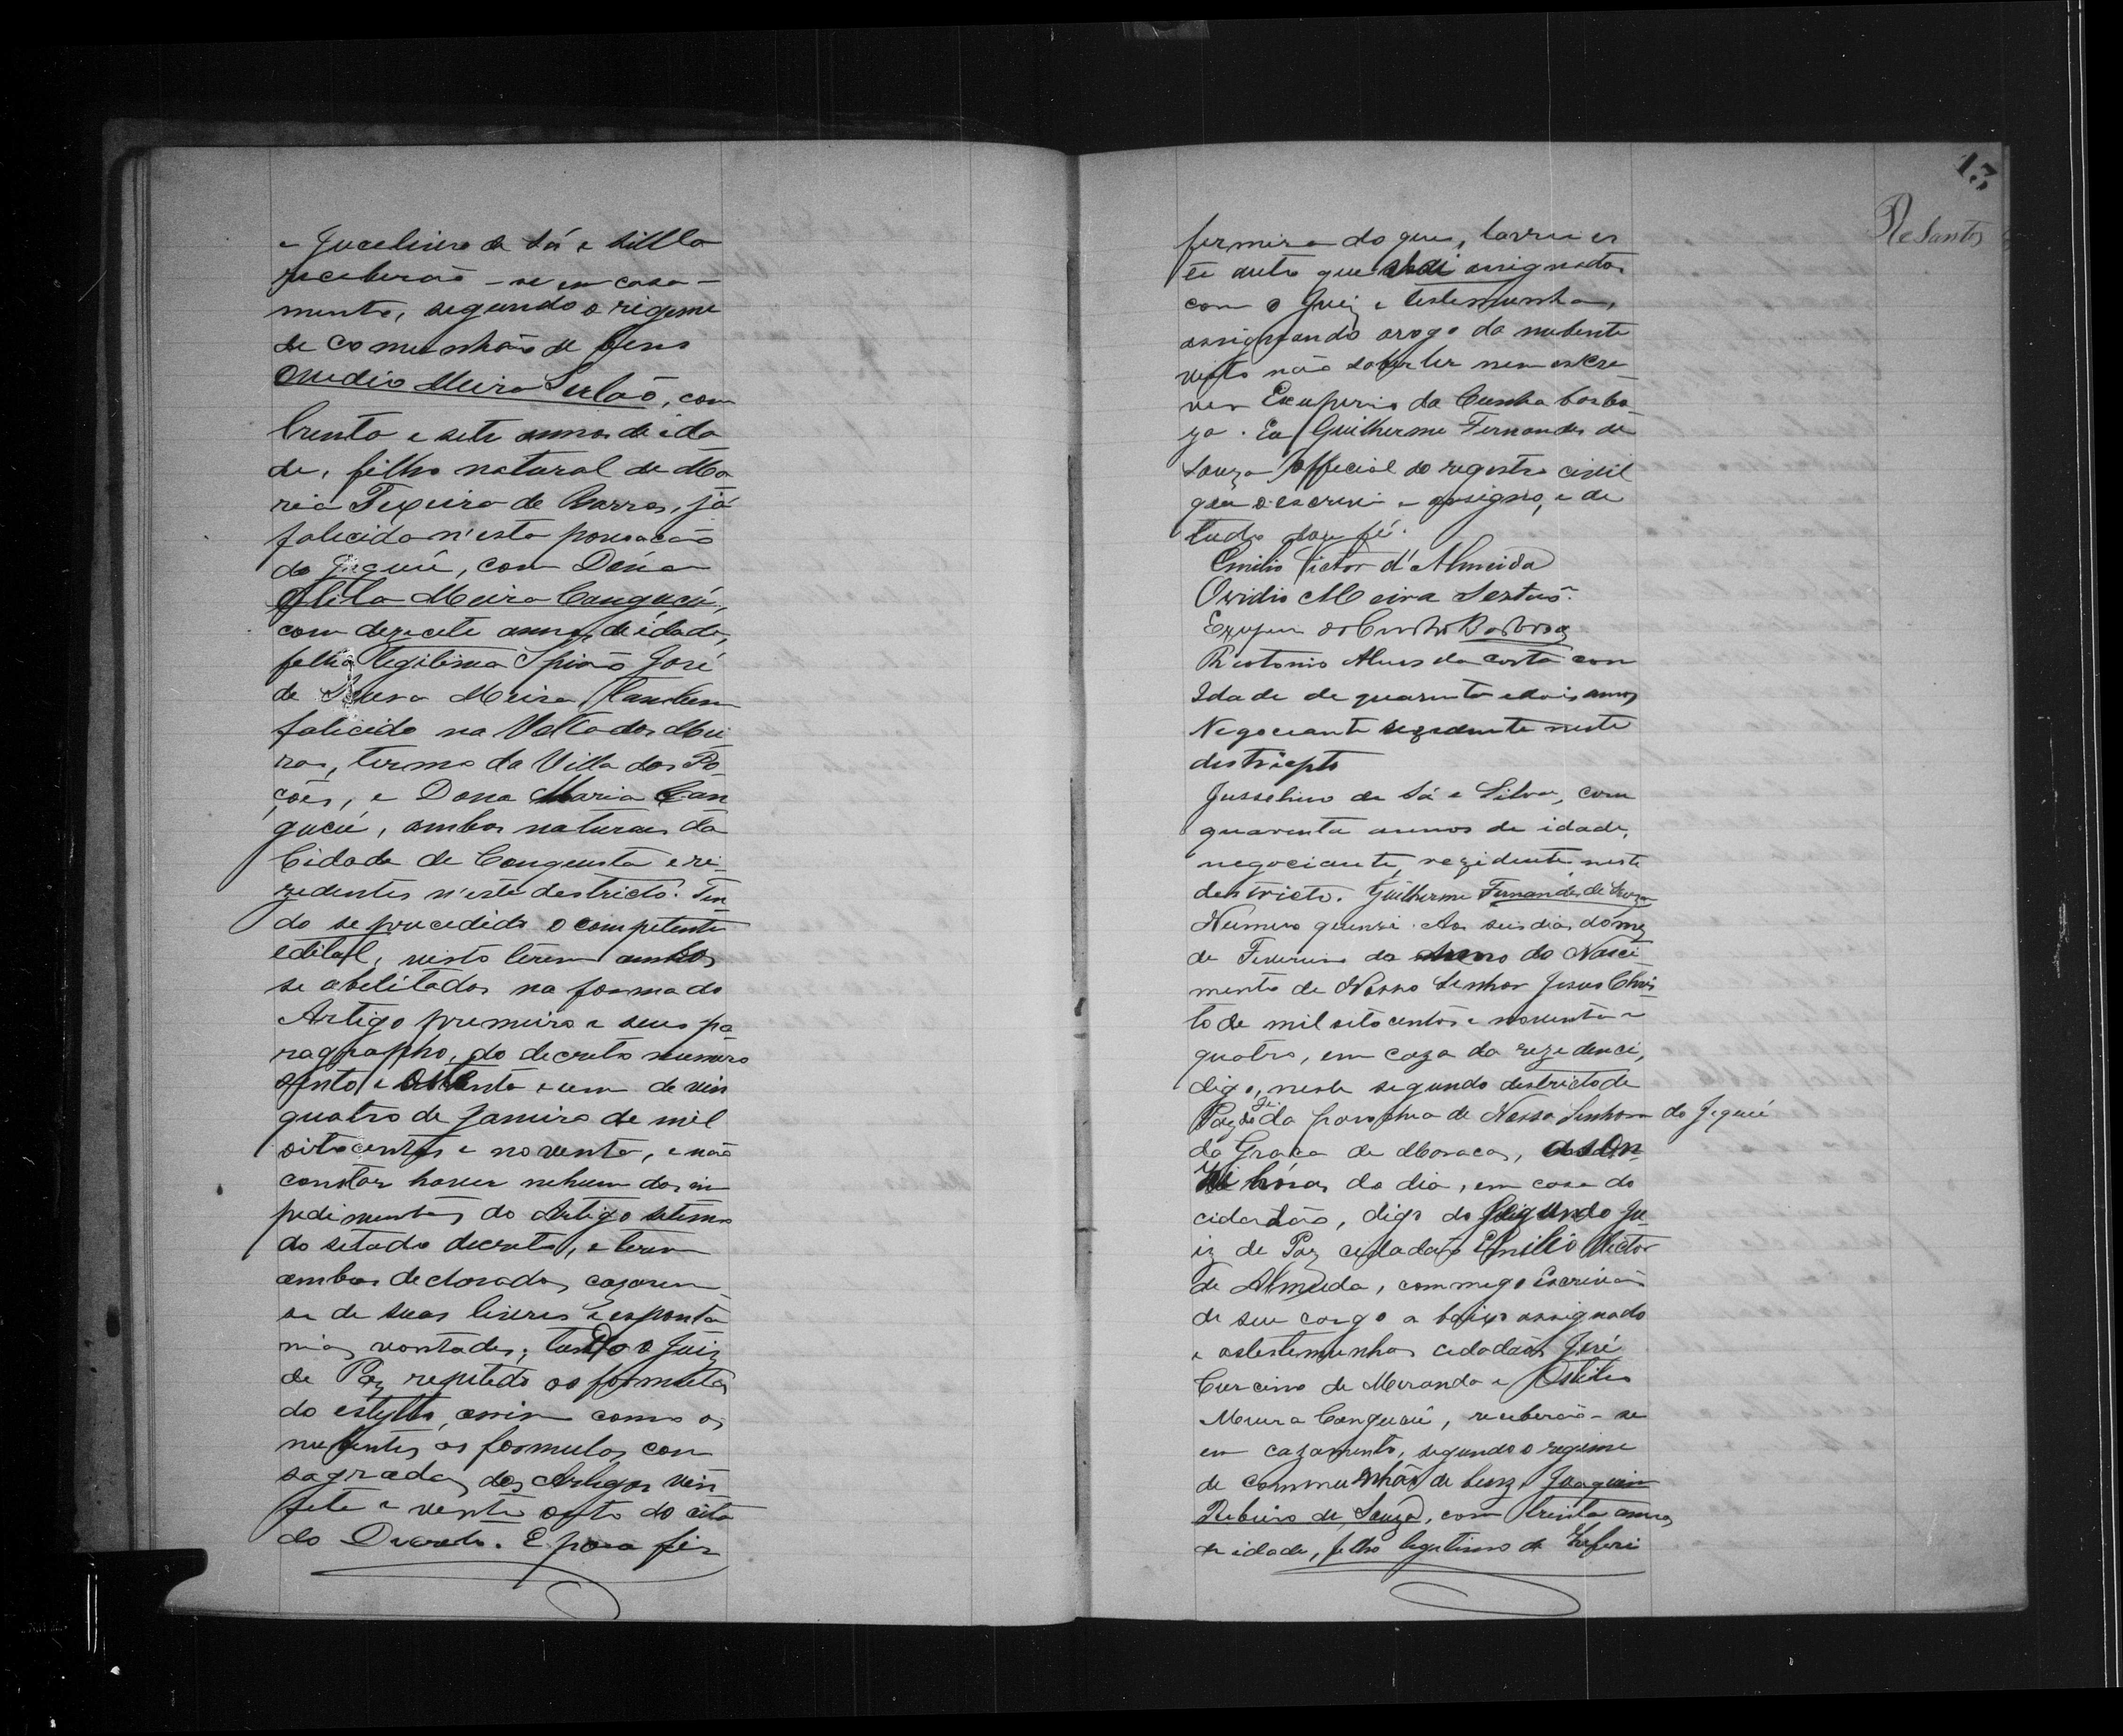 e Jucelino de Sá e Silla
receberão-se em casa-
mento, segundo o rigeme
de comunhão de bens
Ovidio Meira Sertão, com
trenta e sete annos de ida
de, filho natural de Ma
ria Texeira de Barros, já
falecida n'esta povoacão
do Jequié, com Dona
Clila Meira Canguçú,
com dezecete annos de idade,
felha legitima Spirão José
de Souza Meira tambem
falicido na Volta dos Mei
ras, termo da Villa dos Po
ções, e Dona Maria Can
guçú, ambos naturaes da
Cidade de Conquista e re
zedentes n'este destricto. Ten
do se procedido o competente
edital, visto terem ambos
se abelitados na forma do
Artigo premeiro e seus pa
ragrapho, do decreto numero
sento e oitenta e um de vin
quatro de Janeiro de mil
oitocentos e noventa, e não
constar haver nehum dos im
pedimentos do Artigo setimo
do setado decreto, e terem
ambos declarados cazarem
se de suas livres e esponta
nias vontades; tendo o Juiz
de Paz repitido as formulas
do estyllo, assim como os
nubentes as formulas con
sagradas dos Artigos vin
sete e vente outo do cita
do Decreto. E para fir
13
R e Santos
fermeza do que, lavrei es
te auto que vai assignados
com o Juiz e testemunhas,
assignando arogo da nubente
visto não saber ler nem escre
ver Exuperio da Cunha Barbo
za. Eu Guilherme Fernandes de
Souza Official do registro civil
que o escrevi e assigno, e de
tudo dou fé.
Emilio Victor d'Almeida
Ovidio Meira Sertão.
Exuperio da Cunha Barbosa
Riotonio Alves da Costa com
Idade de quarenta e dois annos
Negociante rezedente neste
destricpto
Jusselino de Sá e Silva, com
quarenta annos de idade,
negociante, rezidente neste
destricto. Guilherme Fernandes de Souza
Número quenze. Aos seis dias do mez
de Fevereiro do anno do Nasci
mento de Nosso Senhor Jesus Chris
to de mil oitocentos e noventa e
quatro, em caza da rezedenci,
digo, neste segundo destricto de
Paz de da parochia de Nossa Senhora do Jequié
da Graça de Maracas, as on
ze horas do dia, em casa do
cidadão, digo do segundo Ju
iz de Paz cidadão Emilio Victor
de Almeida, commigo Escrivão
de seu cargo a baixo assignado
e as testemunhas cidadãos José
Curcino de Meranda e
Meira Canguçú, receberão-se
em cazamento, segundo o regime
de communhão de bens, Joaquim
Rebeiro de Souza, com trinta annos
de idade, filho legetimo de Zeferi